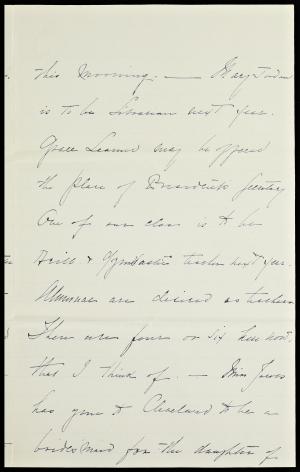 this Morning. — Mary Jordan
is to be Librarian next year.
Grace Learned may be offered
the place of President's Secretary
One of our class is to be
Drill & Gymnastic teacher next year.
Alumnae are desired as teachers
There are four or six here now,
that I think of. — Miss
has gone to Cleveland to be a
bridesmaid for the daughter of